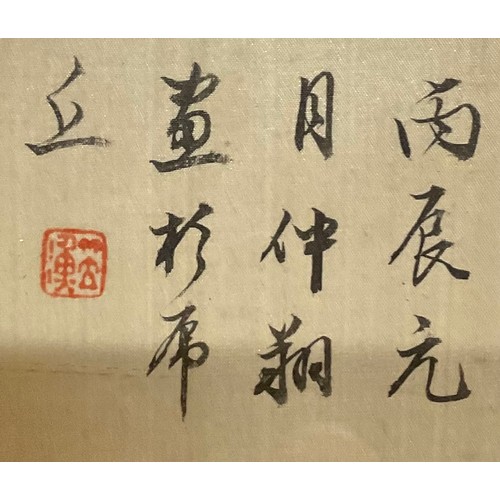 丙辰元
月仲翔
畫於虎
丘